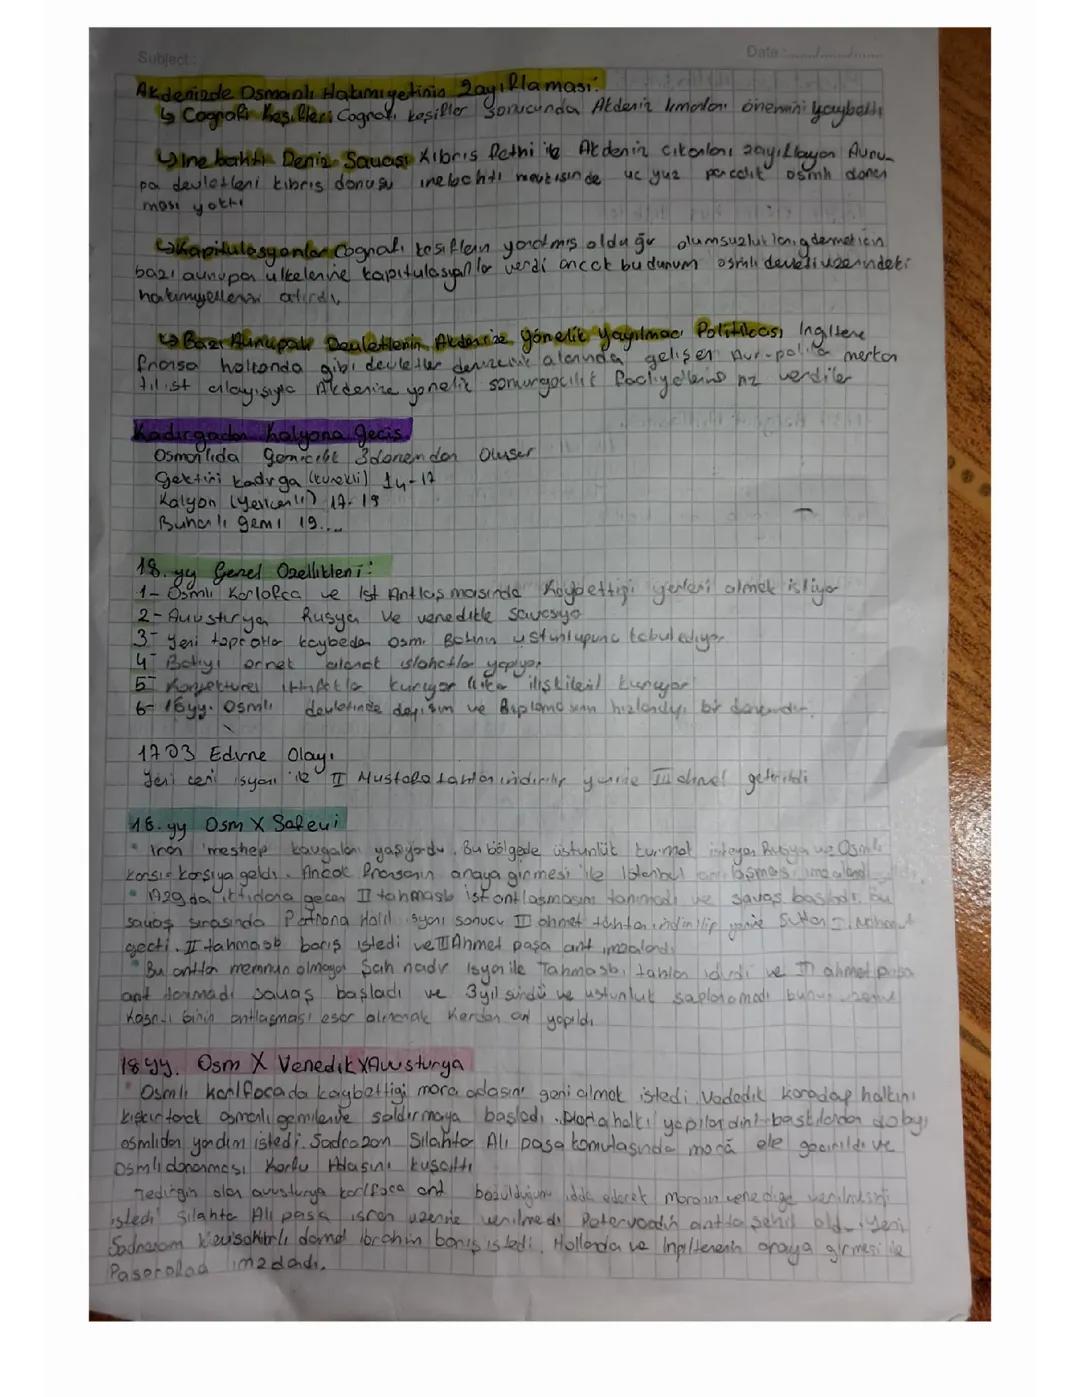 Subject:
Date:
Akdenizde Osmanlı Hakimiyetinin Zayıflaması:
↳ Coğrafi Keşifler: Coğrafi keşifler sonucunda Akdeniz limanları önemini kaybetti
↳ İnebahtı Deniz Savaşı Kıbrıs fethi ile Akdeniz çıkarları zayıflayan Avru-
pa devletleri kıbrıs dönüşü inebahtı mevkisinde uc yuz parcalık osmlı donan
ması yaktı
↳ Kapitulasyonlar Coğrafi kesiflerin yaratmış olduğu olumsuzlukları gidermek icin
bazı avrupa ulkelerine kapitulasyonlar verdi ancak bu durum osmlı devleti üzerindeki
hakimiyetlerini
↳ Bazı Avrupalı Devletlerin Akdenize Yönelik Yayılmacı Politikası İngiltere
fransa hollanda gibi devletler denizcilik alanında gelişen merkan
tilist Akdenize yönelik sömürgecilik faaliyetlerine hız verdiler
Kadırgadan Kalyona Geçis.
Osmanlıda gemicilik 3 dönemden Oluşur
Çektiri kadırga (kürekli) 14-17
Kalyon (Yelkenli) 17-19
Buharlı gemi 19....
18. yy Genel Özellikleri:
1- Osmlı Karlofça ve İst Antlaşmasında Kaybettiği yerleri almak istiyor
2- Avusturya Rusya ve venedikle savaşıyo
3- Yeni topraklar kaybeden Osm. Batının üstünlüğünü kabul ediyor
4- Batıyı örnek alarak ıslahatlar yapıyor
5- ittifaklar kuruyor ilişkileri kuruyor
6- 18yy. Osmlı devletinde değişim ve Diplomasinin hızlandığı bir dönemdir.
1703 Edirne Olayı
Yeni ceri isyanı ile II Mustafa tahttan indirilip yerine III ahmet getirildi
18. yy Osm X Safevi
• İran meshep kavgaları yaşıyordu. Bu bölgede üstünlük kurmak isteyen Rusya ve Osmlı
karsı karşıya geldi. Ancak Fransanın araya girmesi ile İstanbul
• 1729 da iktidara gecen II tahmasb ist antlaşmasını tanımadı ve savaş başladı. Bu
savaş sırasında Patrona Halil isyanı sonucu III ahmet tahttan indirilip yerine Sultan I. Mahmut
geçti. II tahmasb barış istedi ve Ahmet paşa ant imzalandı
• Bu anttan memnun olmayan Şah nadir isyan ile Tahmasbı tahttan indirdi ve ahmet paşa
ant tanımadı savaş başladı ve 3 yıl sürdü ve ustunluk saplanamadı
antlaşması esas alınarak Kerden ant yapıldı
18 yy. Osm X Venedik X Avusturya
• Osmlı karlfocada kaybettiği mora adasını geri almak istedi. Vededik karadağ halkını
kışkırtarak osmanlı gemilerine saldırmaya başladı. Mora halkı yapılan dini baskılardan dolayı
osmlıdan yardım istedi. Sadrazam Silahtar Ali paşa komutasında mora ele geçirildi ve
Osmlı donanması Korfu Adasını kuşattı
Tedirgin olan avusturya karlfoca ant bozulduğunu iddia ederek moranın venediğe verilmesini
istedi Silahta Ali pasa ısrarı üzerine verilmedi Petervaradin anttta şehit old. Yeni
Sadrazam Nevşehirli damat ibrahim barış istedi. Hollanda ve İngilterenin araya girmesi ile
Pasarofça imzaladı.